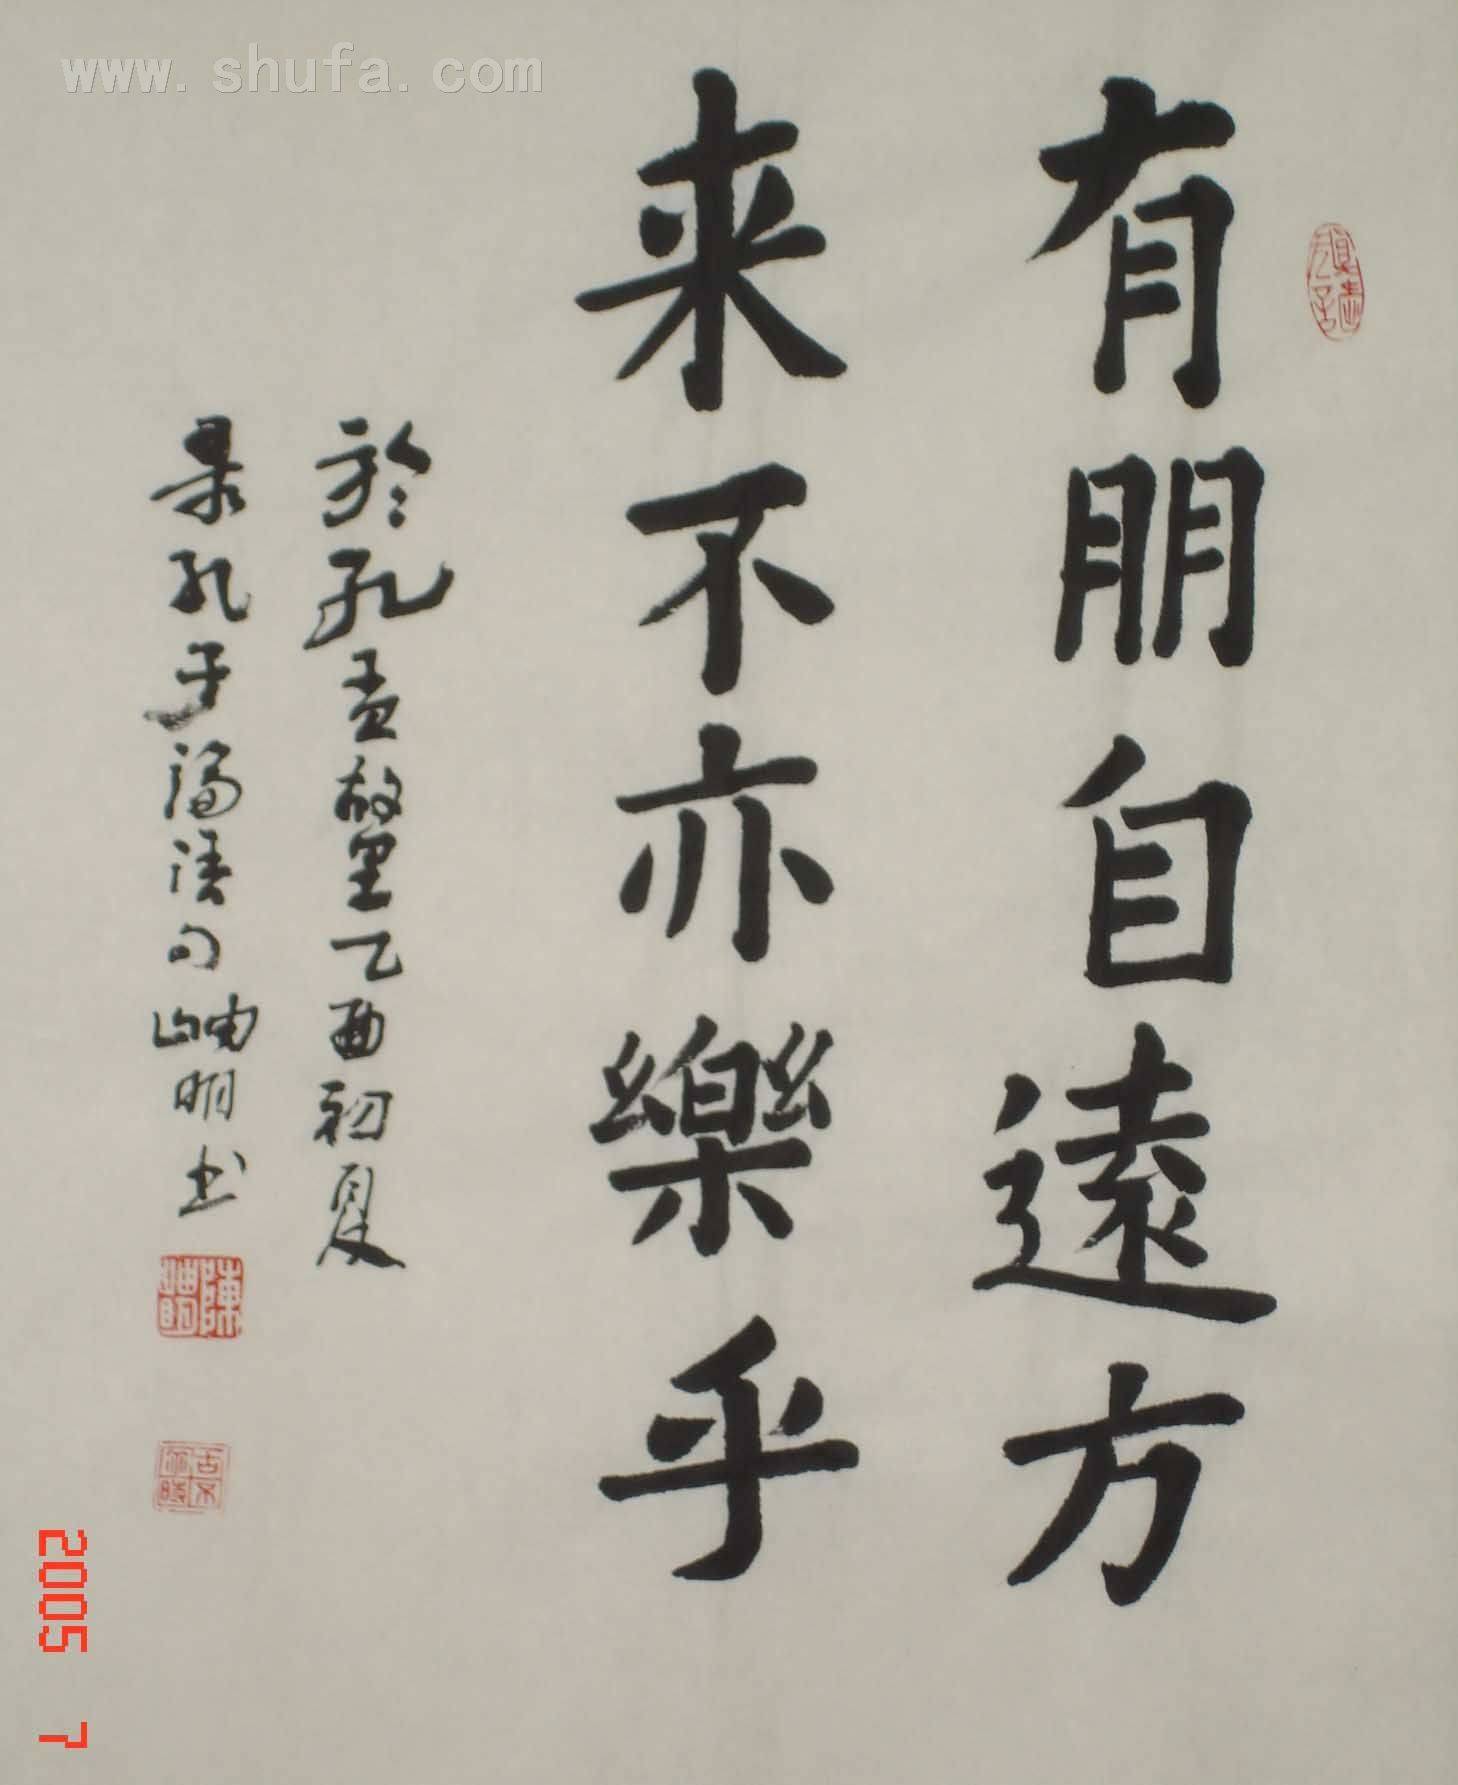 www.shufa.com
有朋自遠方
来不亦樂乎
於孔孟故里乙酉初夏
录孔子論语句岫明书
陳岫明
2005 7